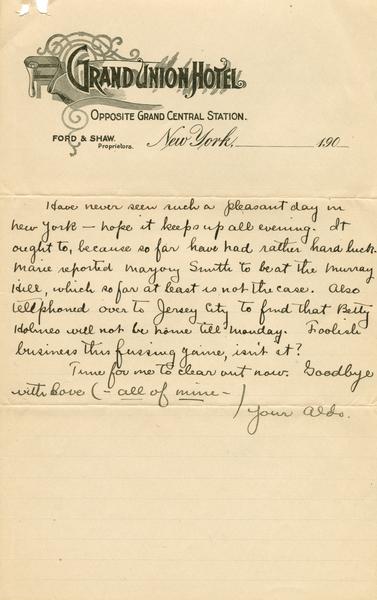 GRAND UNION HOTEL
OPPOSITE GRAND CENTRAL STATION.
FORD & SHAW.
Proprietors.
New York, 190
Have never seen such a pleasant day in
New York — hope it keeps up all evening. It
ought to, because so far have had rather hard luck.
Marie reported Marjory Smith to be at the Murray
Hill, which so far at least is not the case. Also
telephoned over to Jersey City to find that Betty
Holmes will not be home till Monday. Foolish
business this fussing game, isn't it?
Time for me to clear out now. Goodbye
with love (- all of mine -)
Your Aldo.